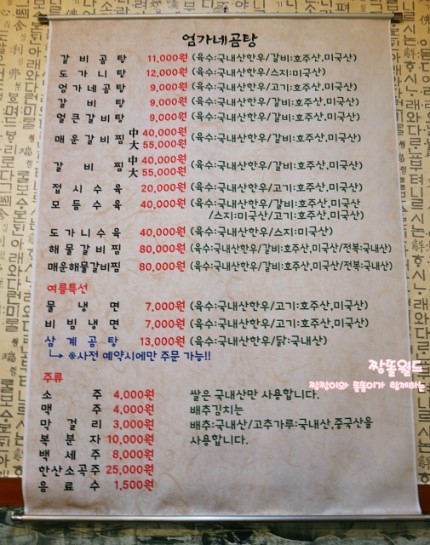 엄가네곰탕
갈비곰탕 11,000원 (육수:국내산한우/갈비:호주산,미국산)
도가니탕 12,000원 (육수:국내산한우/스지:미국산)
엄가네곰탕 9,000원 (육수:국내산한우/고기:호주산,미국산)
갈비탕 9,000원 (육수:국내산한우/갈비:호주산,미국산)
얼큰갈비탕 9,000원 (육수:국내산한우/갈비:호주산,미국산)
매운갈비찜 中 40,000원 大 55,000원 (육수:국내산한우/갈비:호주산,미국산)
갈비찜 中 40,000원 大 55,000원 (육수:국내산한우/갈비:호주산,미국산)
접시수육 20,000원 (육수:국내산한우/고기:호주산,미국산)
모듬수육 40,000원 (육수:국내산한우/갈비:호주산,미국산
/스지:미국산/고기:호주산,미국산)
도가니수육 40,000원 (육수:국내산한우/스지:미국산)
해물갈비찜 80,000원 (육수:국내산한우/갈비:호주산,미국산/전복:국내산)
매운해물갈비찜 80,000원 (육수:국내산한우/갈비:호주산,미국산/전복:국내산)
여름특선
물냉면 7,000원 (육수:국내산한우/고기:호주산,미국산)
비빔냉면 7,000원 (육수:국내산한우/고기:호주산,미국산)
삼계곰탕 13,000원 (육수:국내산한우/닭:국내산)
※사전 예약시에만 주문 가능!!
짱똘월드
짱짱이와 똘똘이가 함께하는
주류
소주 4,000원
맥주 4,000원
막걸리 3,000원
복분자 10,000원
백세주 8,000원
한산소곡주 25,000원
음료수 1,500원
쌀은 국내산만 사용합니다.
배추김치는
배추:국내산/고추가루:국내산,중국산을
사용합니다.